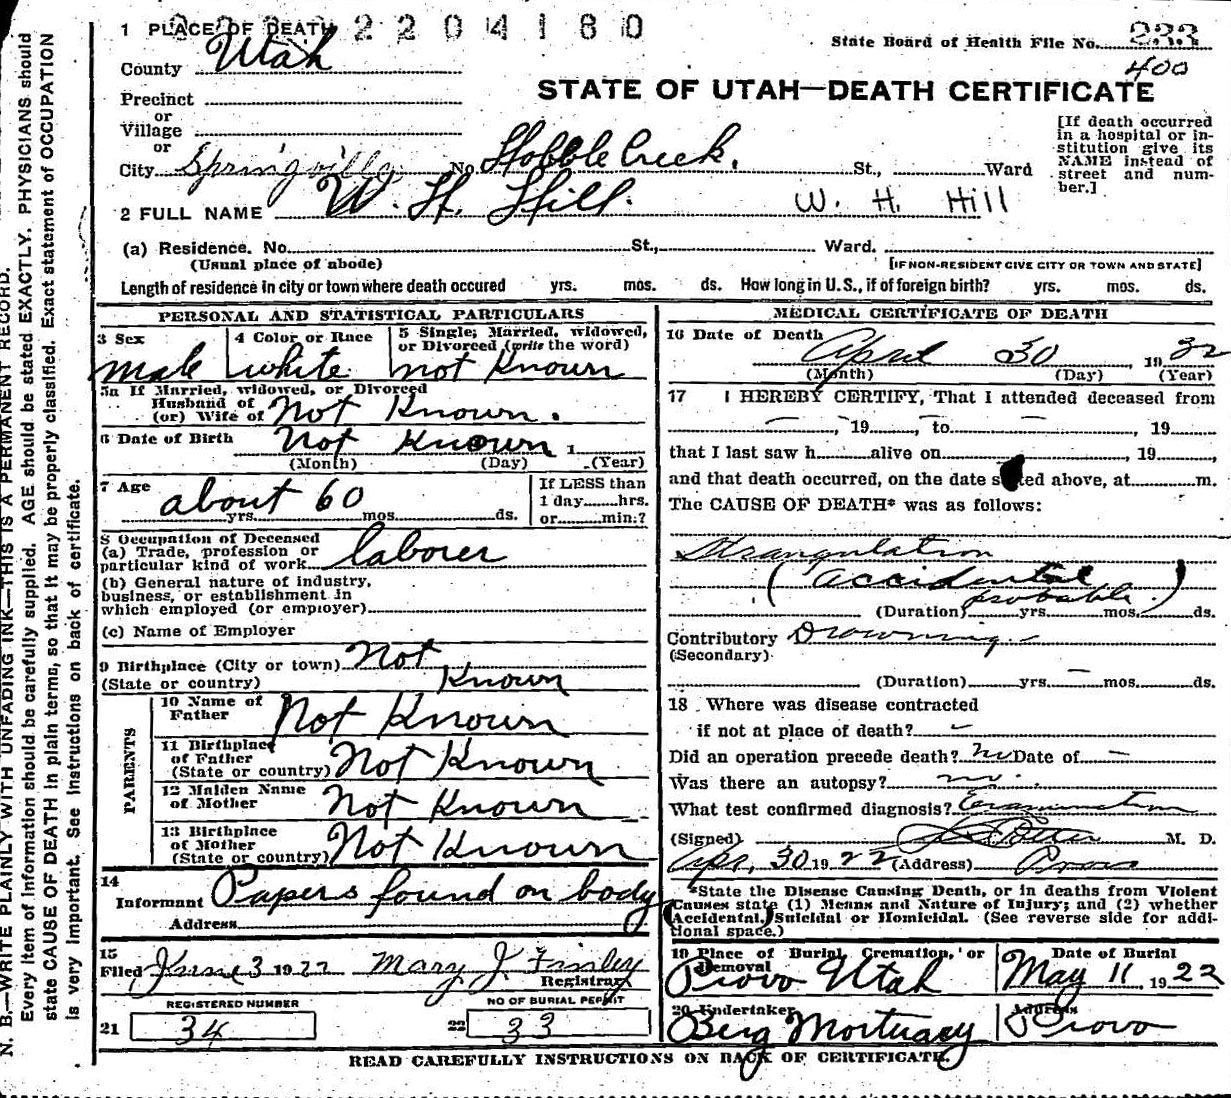 1 PLACE OF DEATH 2204180
State Board of Health File No. 233
400
County Utah
STATE OF UTAH—DEATH CERTIFICATE
Precinct
or
Village
or
City Springville No Hobble Creek. St., Ward
[If death occurred
in a hospital or in-
stitution give its
NAME instead of
street and num-
ber.]
2 FULL NAME W. H. Hill. W. H. Hill
(a) Residence. No. St., Ward.
(Usual place of abode) [IF NON-RESIDENT GIVE CITY OR TOWN AND STATE]
Length of residence in city or town where death occured yrs. mos. ds. How long in U.S., if of foreign birth? yrs. mos. ds.
PERSONAL AND STATISTICAL PARTICULARS
3 Sex
male
4 Color or Race
white
5 Single, Married, widowed,
or Divorced (write the word)
not Known
5a If Married, widowed, or Divorced
Husband of
(or) Wife of Not Known.
6 Date of Birth Not Known 1
(Month) (Day) (Year)
7 Age about 60
yrs. mos. ds.
If LESS than
1 day hrs.
or min.?
8 Occupation of Deceased
(a) Trade, profession or
particular kind of work laborer
(b) General nature of industry,
business, or establishment in
which employed (or employer)
(c) Name of Employer
9 Birthplace (City or town) Not
(State or country) Known
PARENTS
10 Name of
Father Not Known
11 Birthplace
of Father
(State or country) Not Known
12 Maiden Name
of Mother Not Known
13 Birthplace
of Mother
(State or country) Not Known
14
Informant Papers found on body
Address
15
Filed June 3 1922 Mary J. Finley
Registrar
REGISTERED NUMBER NO OF BURIAL PERMIT
21 34 22 33
MEDICAL CERTIFICATE OF DEATH
16 Date of Death
April 30 1922
(Month) (Day) (Year)
17 I HEREBY CERTIFY, That I attended deceased from
— , 19 , to — , 19
that I last saw h alive on , 19 ,
and that death occurred, on the date stated above, at m.
The CAUSE OF DEATH* was as follows:
Strangulation
(accidental
probable.)
(Duration) yrs. mos. ds.
Contributory Drowning.
(Secondary)
(Duration) yrs. — mos. ds.
18 Where was disease contracted
if not at place of death? –
Did an operation precede death? no Date of —
Was there an autopsy? no.
What test confirmed diagnosis? Examination
(Signed) M. D.
Apr. 30 1922 (Address) Provo
*State the Disease Causing Death, or in deaths from Violent
Causes state (1) Means and Nature of Injury; and (2) whether
(Accidental,) Suicidal or Homicidal. (See reverse side for addi-
tional space.)
19 Place of Burial, Cremation, or
Removal
Provo Utah
Date of Burial
May 11 1922
20 Undertaker
Berg Mortuary
Address
Provo
READ CAREFULLY INSTRUCTIONS ON BACK OF CERTIFICATE.
N. B.—WRITE PLAINLY WITH UNFADING INK—THIS IS A PERMANENT RECORD.
Every item of information should be carefully supplied. AGE should be stated EXACTLY. PHYSICIANS should
state CAUSE OF DEATH in plain terms, so that it may be properly classified. Exact statement of OCCUPATION
is very important. See instructions on back of certificate.